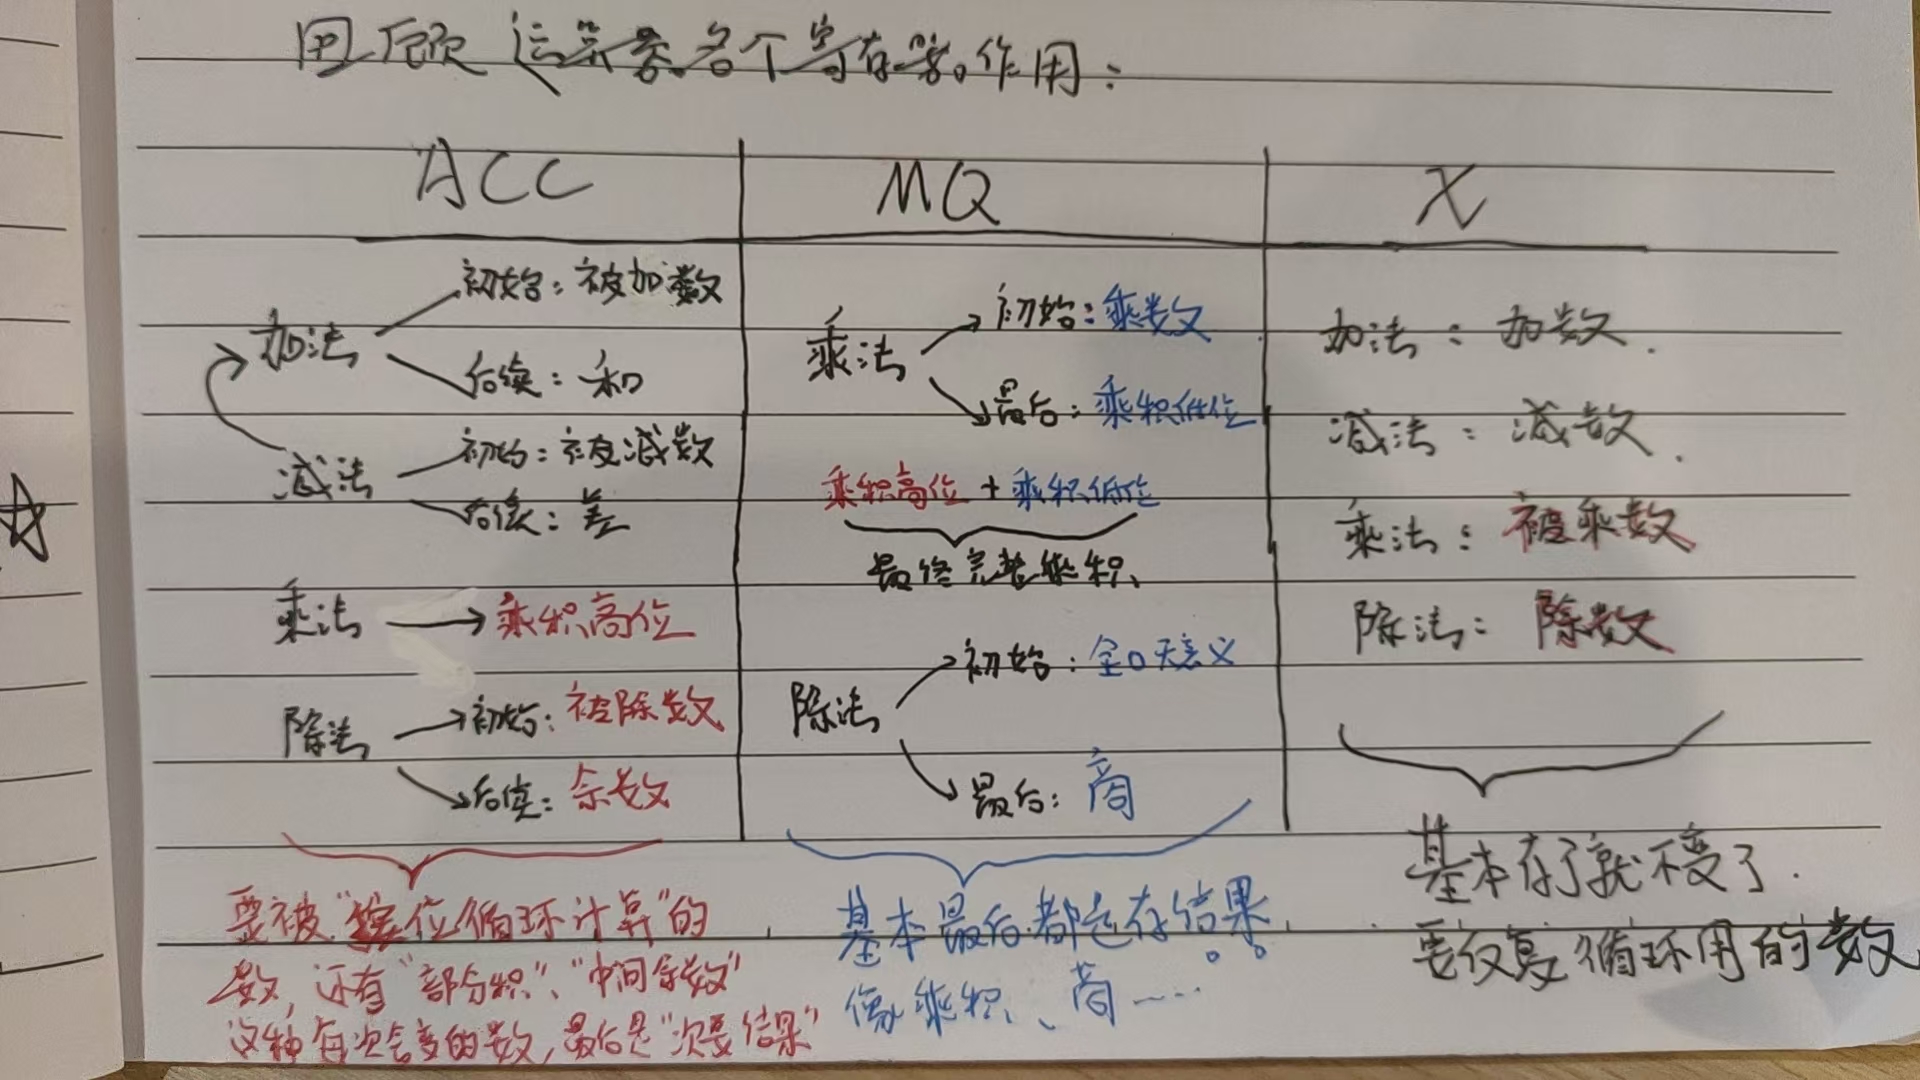 回顾运算器各个寄存器作用：
ACC
MQ
X
加法
初始：被加数
后续：和
减法
初始：被减数
后续：差
乘法 → 乘积高位
除法
初始：被除数
后续：余数
要被“ 位循环计算”的
数，还有“部分积”、“中间余数”
这种每次会变的数，最后是“次要结果”
乘法
初始：乘数
最后：乘积低位
乘积高位 + 乘积低位
最终完整乘积、
除法
初始：全0无意义
最后：商
基本最后都是存结果。。
像乘积、商……
加法：加数．
减法：减数．
乘法：被乘数
除法：除数
基本存了就不变了．
要反复循环用的数